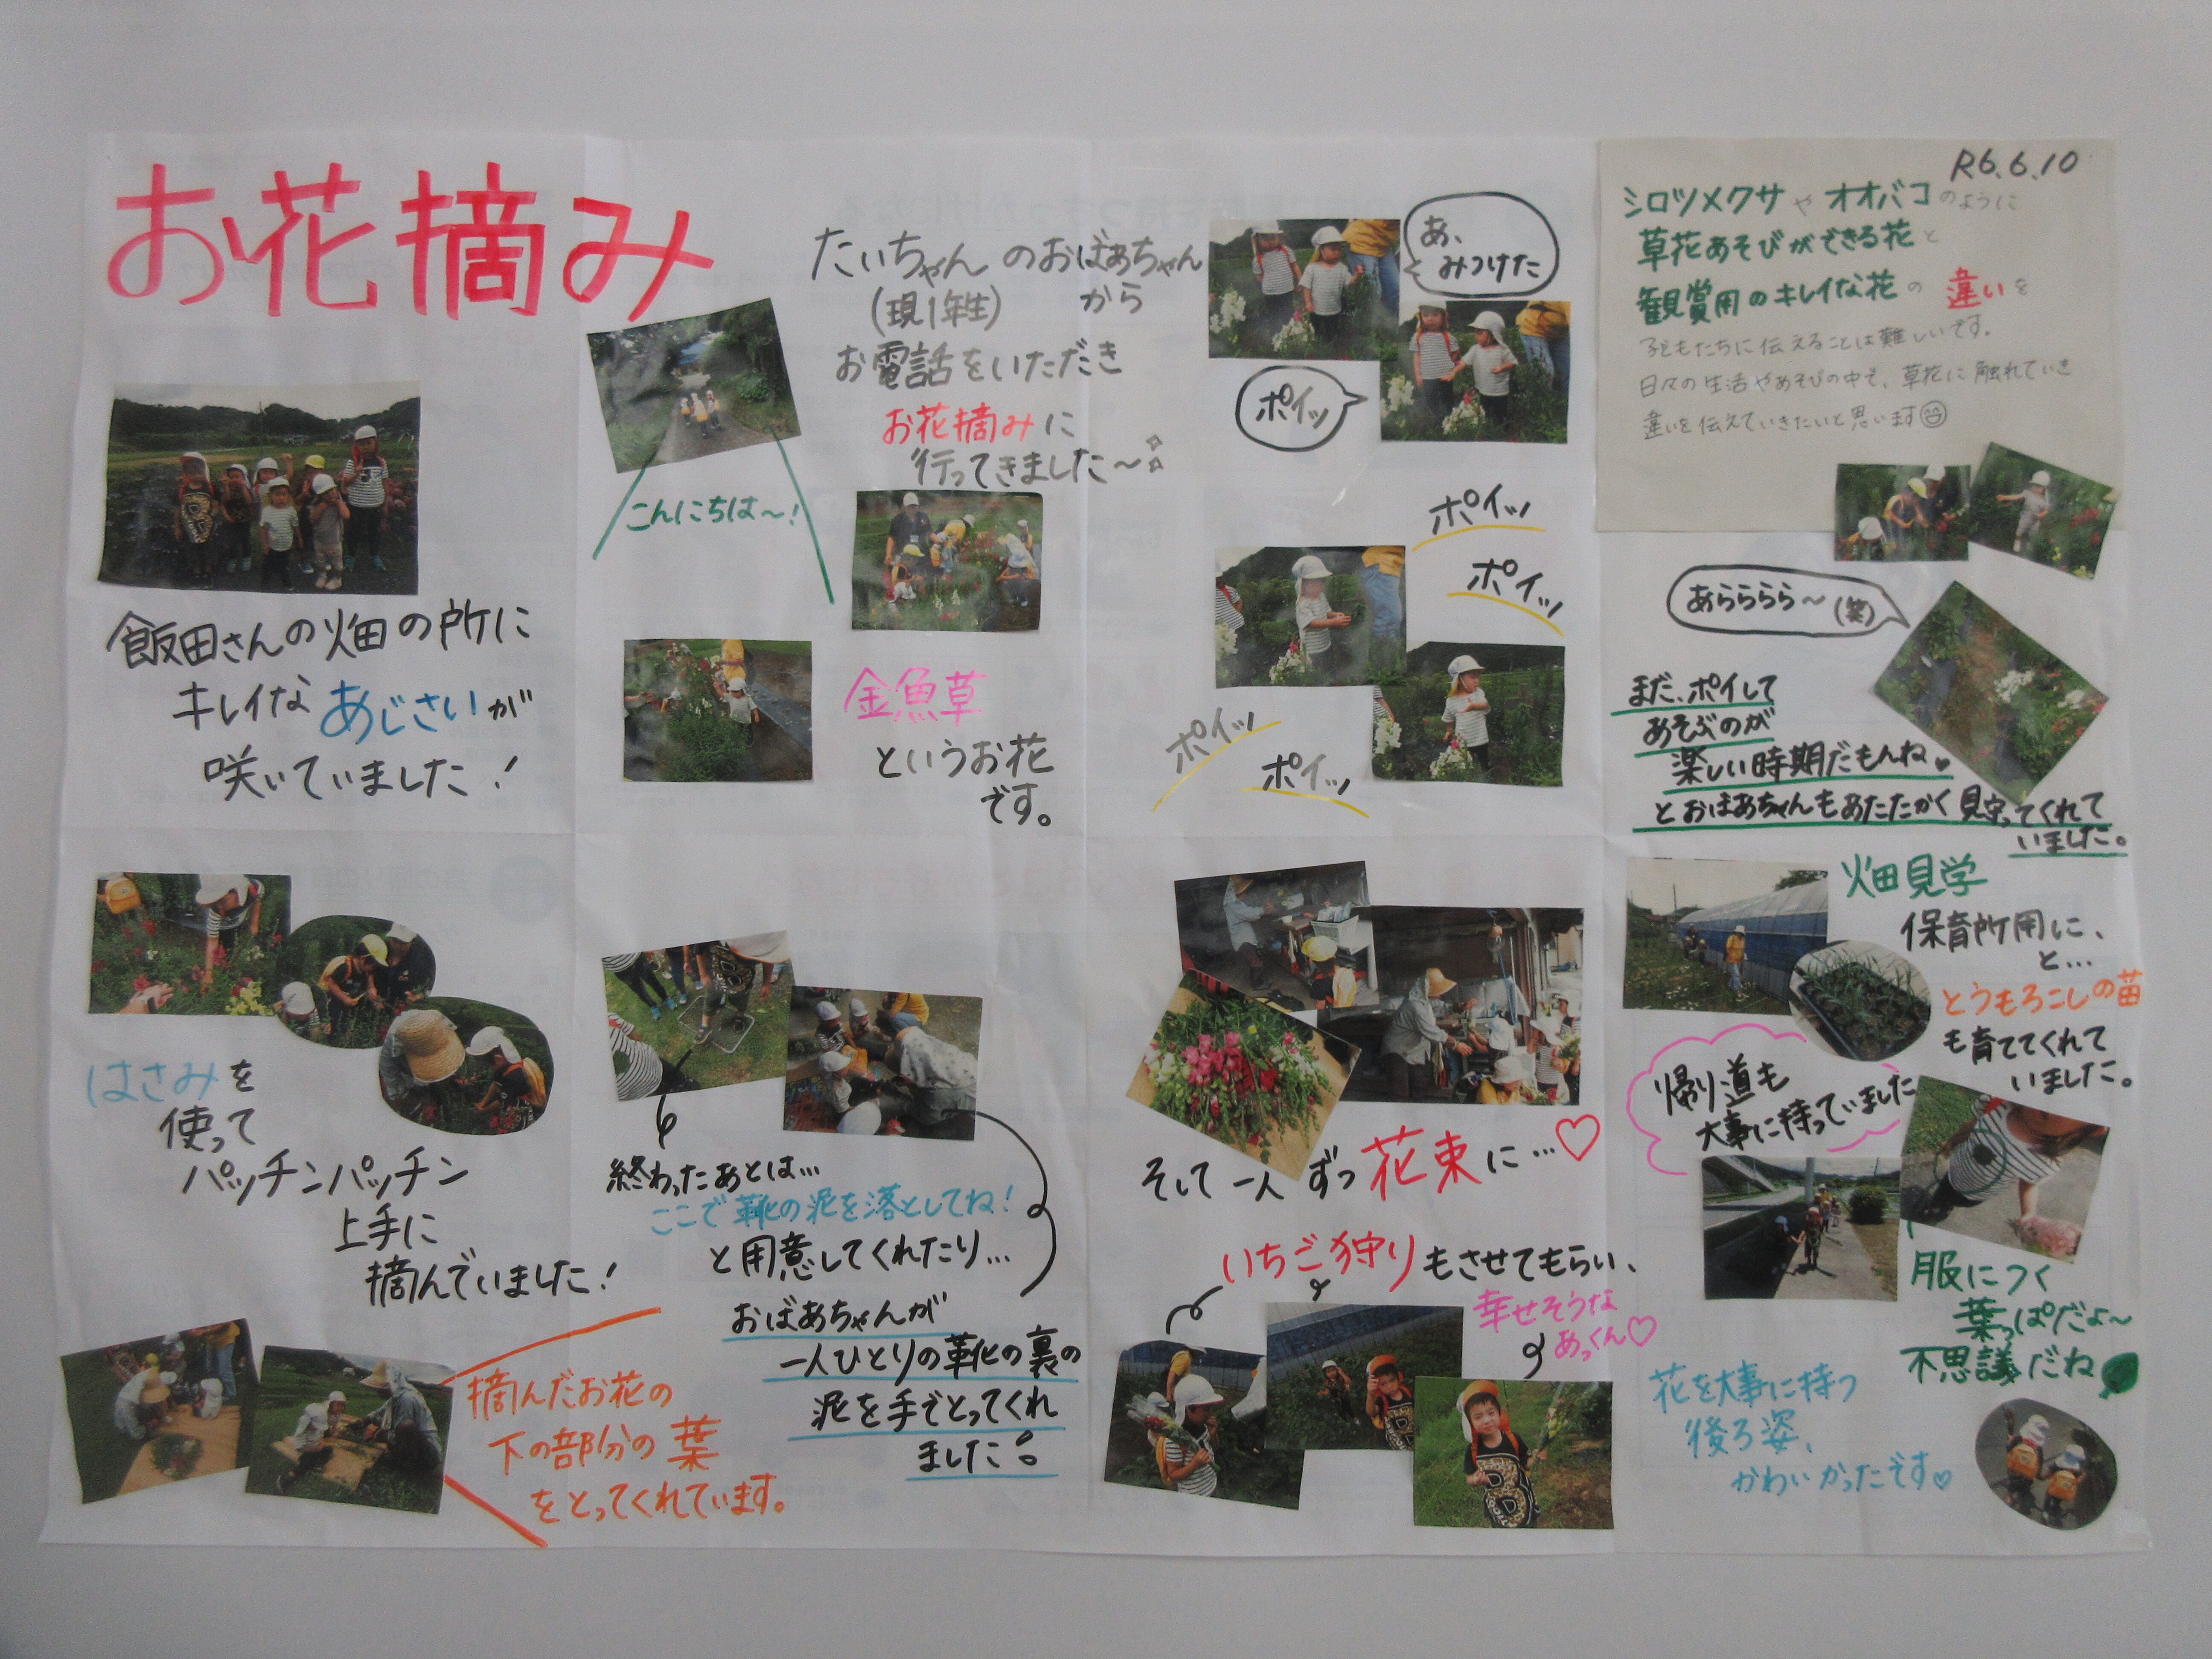 お花摘み
飯田さんの畑の所に
キレイなあじさいが
咲いていました!
こんにちは〜!
たいちゃんのおばあちゃん
(現1年生) から
お電話をいただき
お花摘みに
行ってきました〜
金魚草
というお花
です。
あ、
みつけた
ポイッ
ポイッ
ポイッ
ポイッ
ポイッ
R6.6.10
シロツメクサやオオバコのように
草花あそびができる花と
観賞用のキレイな花の違いを
子どもたちに伝えることは難しいです。
日々の生活やあそびの中で、草花に触れていき
違いを伝えていきたいと思います
あらららら〜(笑)
まだ、ポイして
あそぶのが
楽しい時期だもんね♥
とおばあちゃんもあたたかく見守ってくれて
いました。
はさみを
使って
パッチンパッチン
上手に
摘んでいました!
摘んだお花の
下の部分の葉
をとってくれています。
終わったあとは…
ここで靴の泥を落としてね!
と用意してくれたり…
おばあちゃんが
一人ひとりの靴の裏の
泥を手でとってくれ
ました
そして一人ずつ花束に…♡
いちご狩りもさせてもらい、
幸せそうな
あっくん♡
畑見学
保育所用に、
と…
とうもろこしの苗
も育ててくれて
いました。
帰り道も
大事に持っていました
服につく
葉っぱだよ〜
不思議だね
花を大事に持つ
後ろ姿、
かわいかったです♥